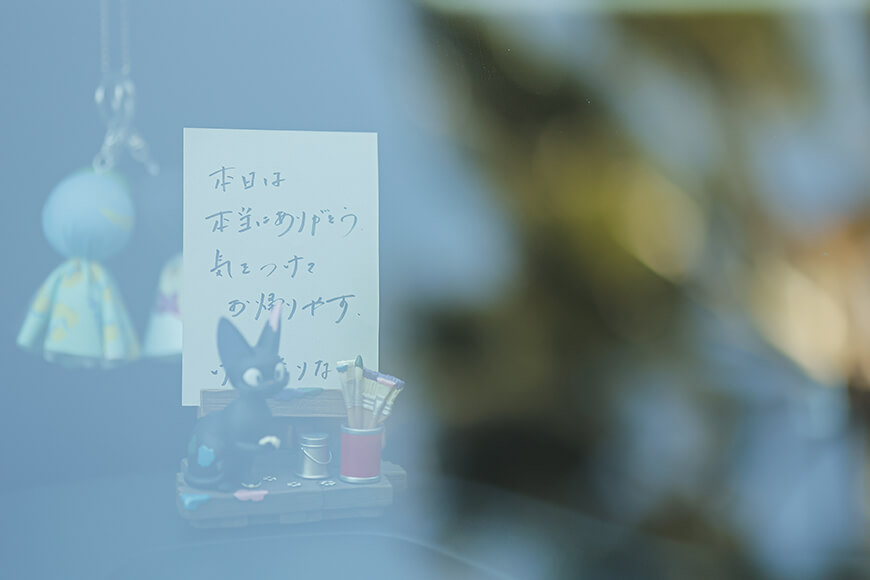 本日は
本当にありがとう
気をつけて
お帰りやす.